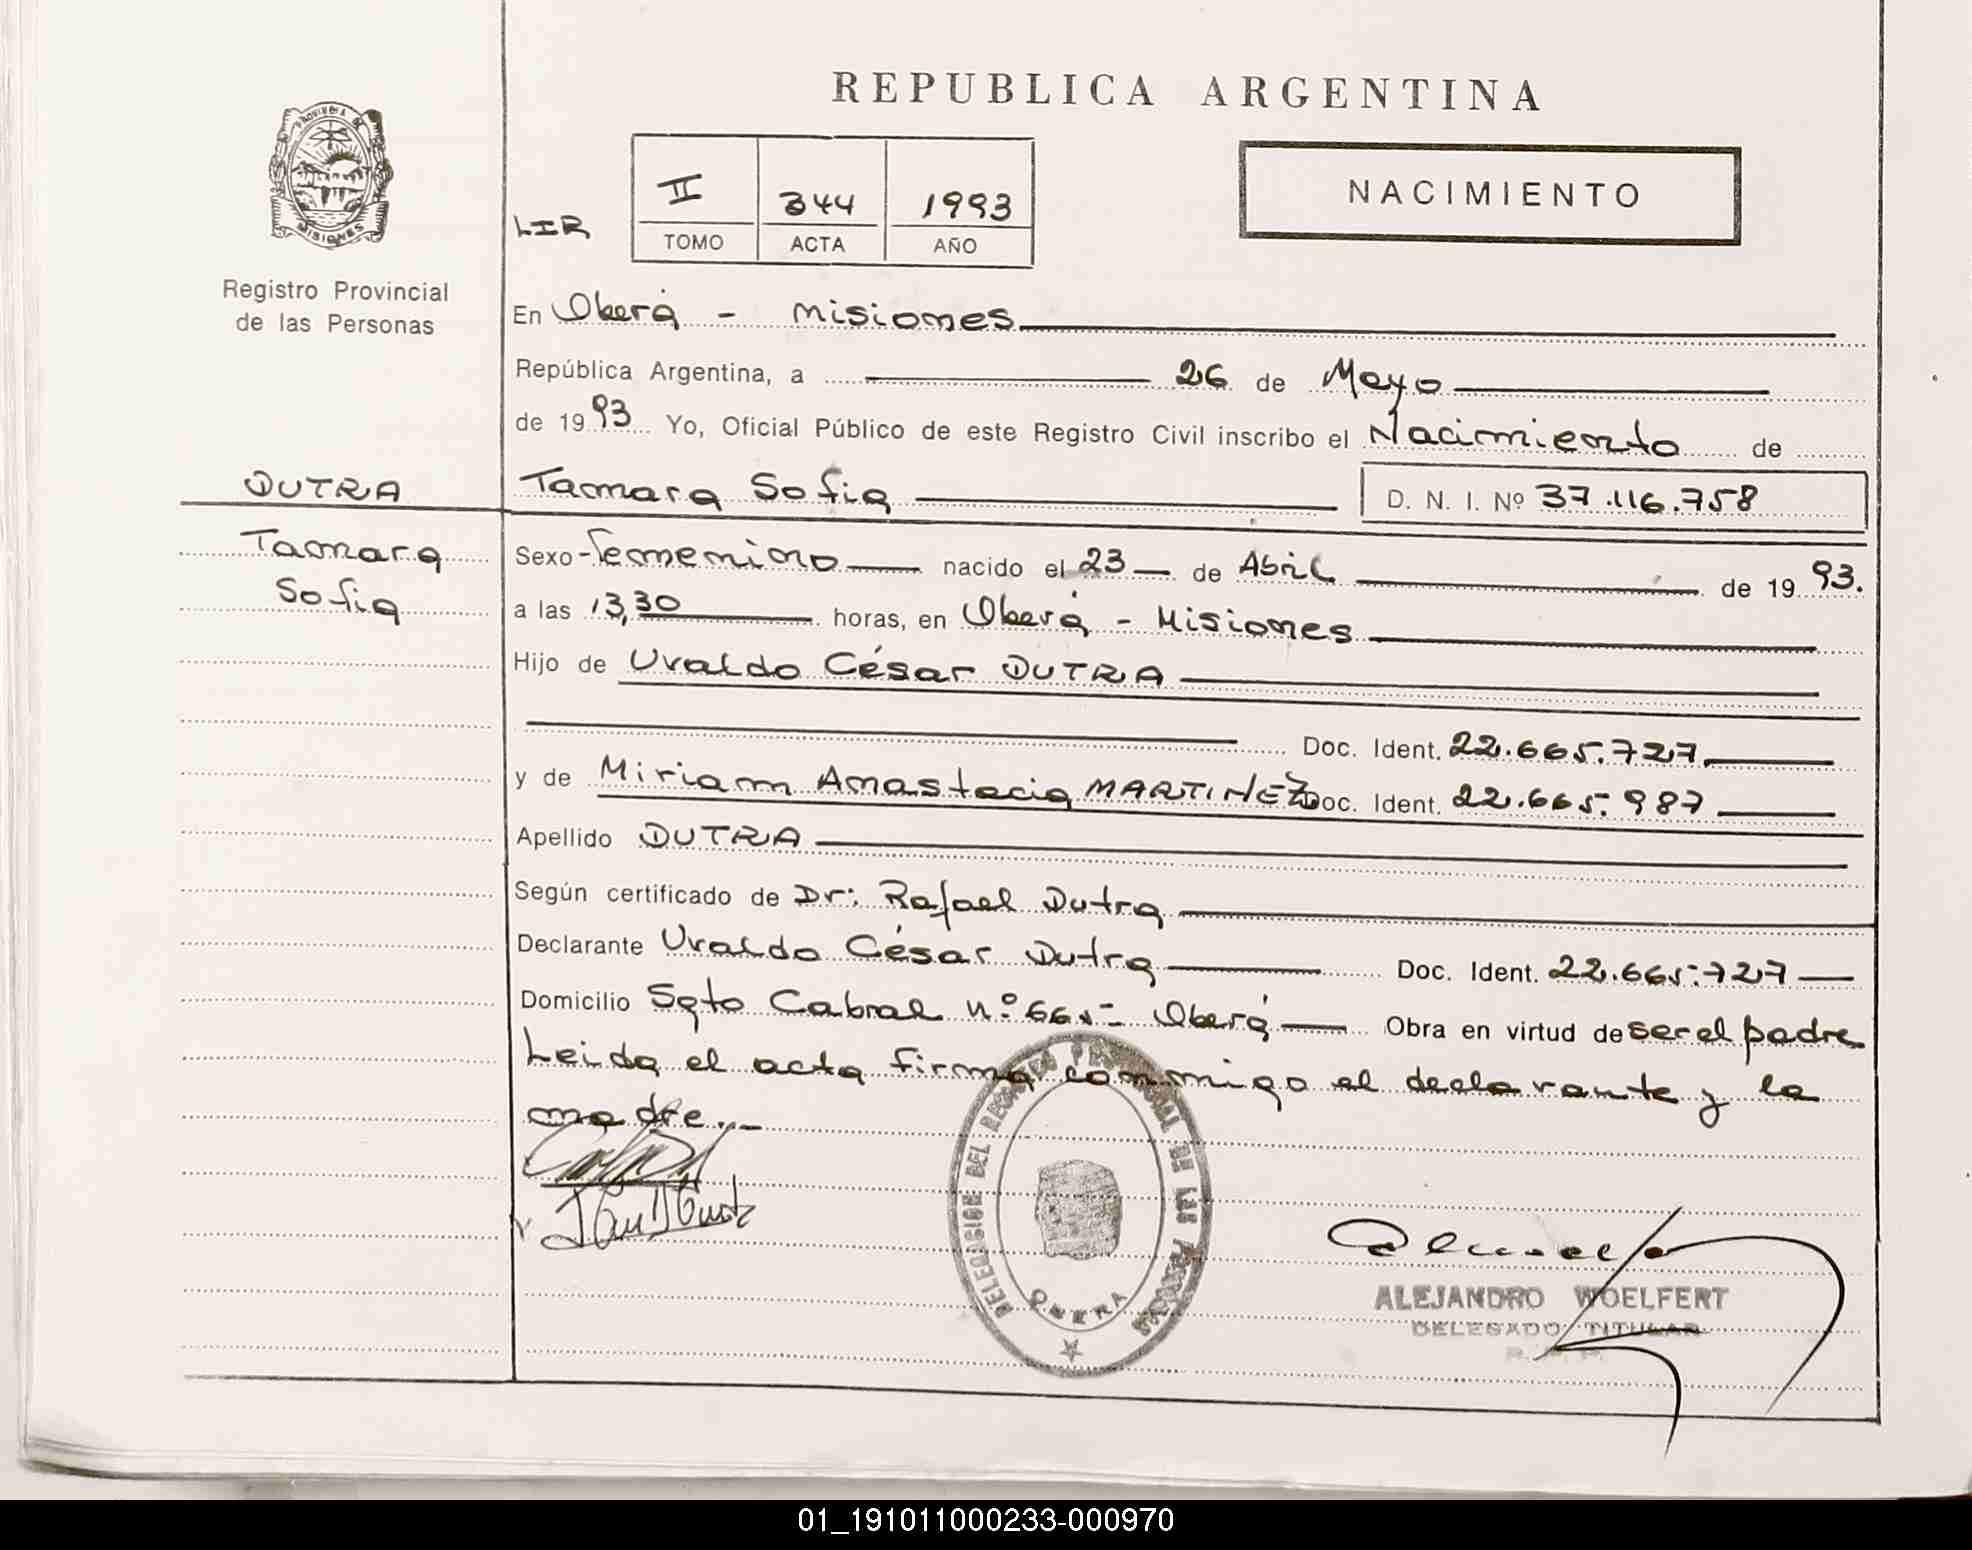 REPUBLICA ARGENTINA
PROVINCIA DE
MISIONES
Registro Provincial
de las Personas
LIR
II 344 1993
TOMO ACTA AÑO
NACIMIENTO
En Oberá - Misiones
República Argentina, a 26 de Mayo
de 1993 Yo, Oficial Público de este Registro Civil inscribo el Nacimiento de
DUTRA
Tamara Sofia D. N. I. Nº 37.116.758
Tamara
Sofia
Sexo - Femenino nacido el 23 de Abril de 1993.
a las 13,30 horas, en Oberá - Misiones
Hijo de Uvaldo César DUTRA
Doc. Ident. 22.665.727
y de Miriam Anastacia MARTINEZ Doc. Ident. 22.665.987
Apellido DUTRA
Según certificado de Dr: Rafael Dutra
Declarante Uvaldo César Dutra Doc. Ident. 22.665.727
Domicilio Sgto Cabral nº 665 - Oberá Obra en virtud de ser el padre
Leida el acta firma conmigo el declarante y la
madre.-
DELEGACION DEL REGISTRO PROVINCIAL DE LAS PERSONAS
OBERA
ALEJANDRO WOELFERT
DELEGADO TITULAR
R. P. P.
01_191011000233-000970